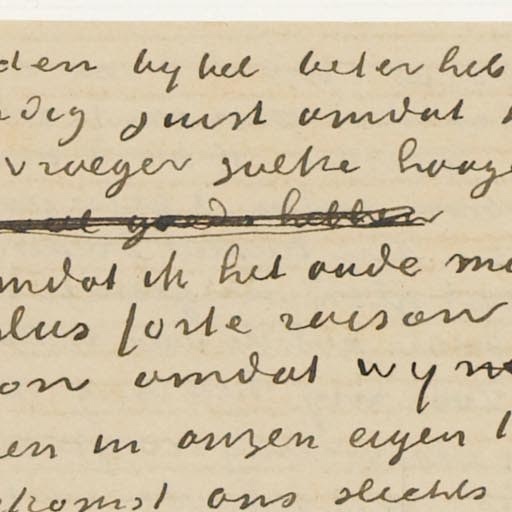 den bybel beter heb
dig juist omdat
vroeger zulke hooge
goeds hebben
omdat ik het oude mo
plus forte raison
on omdat wy
en in onzen eigen
komst ons slechts